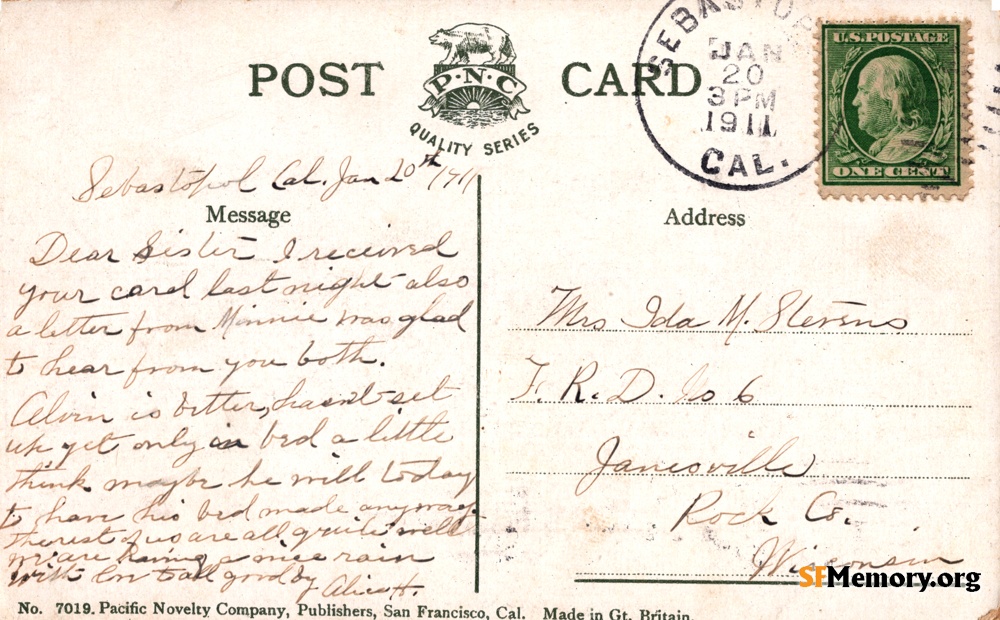 POST CARD
P·N·C
QUALITY SERIES
SEBASTO
JAN
20
3 PM
1911
CAL.
U.S. POSTAGE
ONE CENT
Sebastopol Cal. Jan 20th 1911
Message
Dear Sister I received
your card last night also
a letter from Minnie was glad
to hear from you both.
Alvin is better, hasn't set
up yet only in bed a little
think maybe he will today
to have his bed made anyway.
the rest of us are all quite well
we are having a nice rain
with love to all good by Alice H.
Address
Mrs Ida M. Stevens
F. R. D. No 6
Janesville
Rock Co.
Wisconsin
SFMemory.org
No. 7019. Pacific Novelty Company, Publishers, San Francisco, Cal. Made in Gt. Britain.